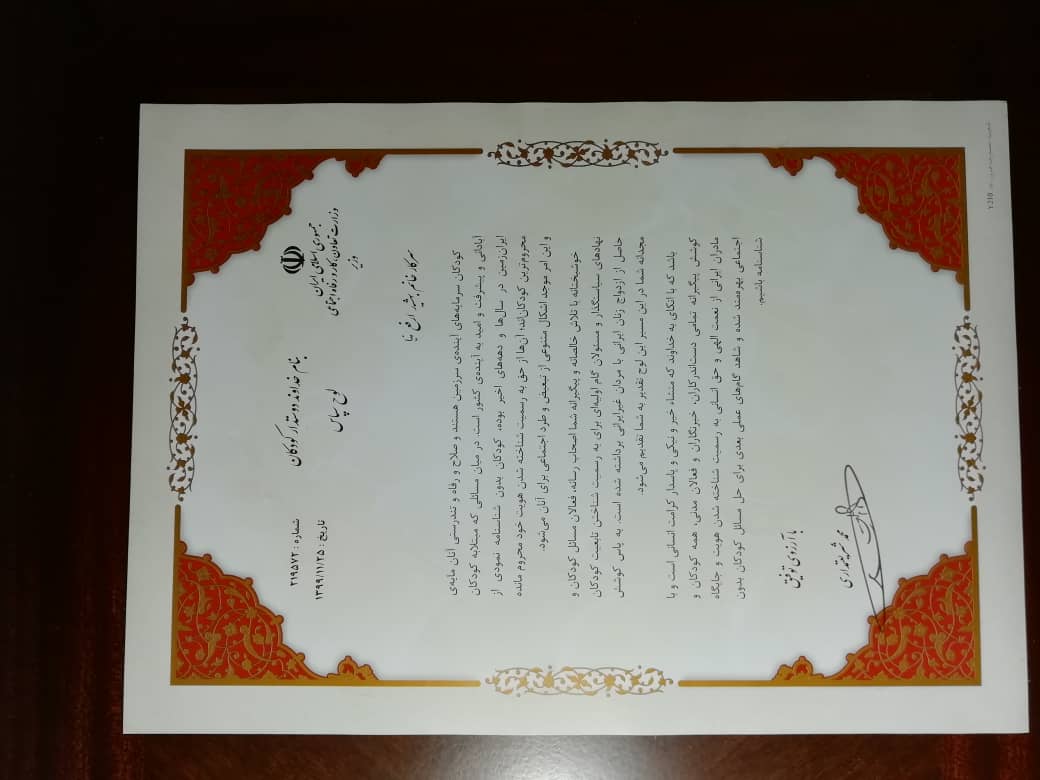 جمهوری اسلامی ایران
وزارت تعاون، کار و رفاه اجتماعی
وزیر
بنام خداوند دوستدار کودکان
لوح سپاس
شماره : ۲۱۹۵۷۲
تاریخ : ۱۳۹۹/۱۱/۲۵
سرکار خانم
کودکان سرمایه‌های آینده‌ی سرزمین هستند و صلاح و رفاه و تندرستی آنان مایه‌ی
آبادانی و پیشرفت و امید به آینده‌ی کشور است. در میان مسائلی که مبتلابه کودکان
ایران‌زمین در سال‌ها و دهه‌های اخیر بوده، کودکان بدون شناسنامه نمودی از
محروم‌ترین کودکان‌اند؛ آن‌ها از حق به رسمیت شناخته شدن هویت خود محروم مانده
و این امر موجد اشکال متنوعی از تبعیض و طرد اجتماعی برای آنان می‌شود.
خوشبختانه با تلاش خالصانه و پیگیرانه شما اصحاب رسانه، فعالان مسائل کودکان و
نهادهای سیاستگذار و مسئولان گام اولیه‌ای برای به رسمیت شناختن تابعیت کودکان
حاصل از ازدواج زنان ایرانی با مردان غیرایرانی برداشته شده است. به پاس کوشش
مجدانه شما در این مسیر این لوح تقدیر به شما تقدیم می‌شود.
باشد که با اتکای به خداوند که منشاء خیر و نیکی و پاسدار کرامت انسانی است و با
کوشش پیگیرانه تمامی دست‌اندرکاران، خبرنگاران و فعالان مدنی، همه کودکان و
مادران ایرانی از نعمت الهی و حق انسانی به رسمیت شناخته شدن هویت و جایگاه
اجتماعی بهره‌مند شده و شاهد گام‌های عملی بعدی برای حل مسائل کودکان بدون
شناسنامه باشیم.
با آرزوی توفیق
محمد شریعتمداری
Y210